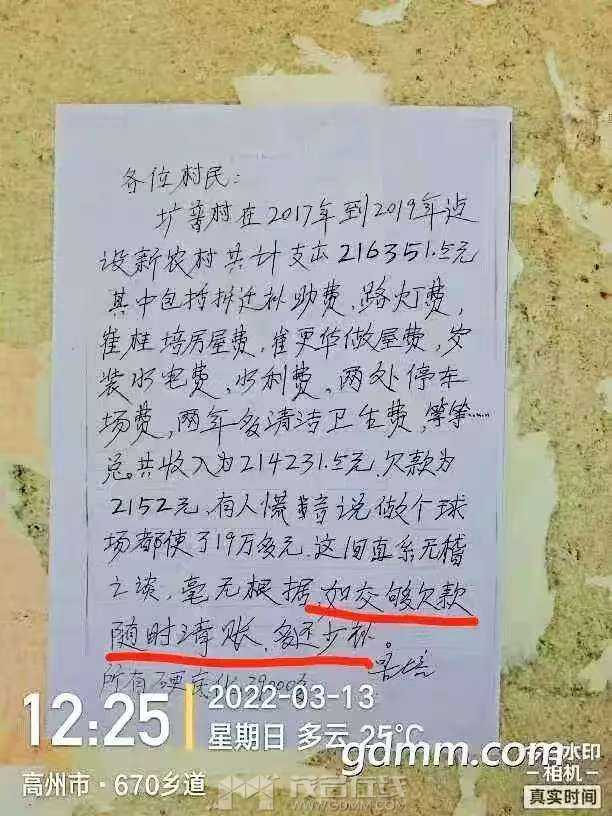 各位村民:
圹 村在2017年到2019年
设新农村共计支出216351.5元
其中包括拆迁补助费,路灯费,
崔桂培房屋费,崔更华做屋费,安
装水电费,水利费,两处停车
场费,两年多清洁卫生费,等等……
总共收入为214231.5元.欠款为
2152元,有人 说做个球
场都使了19万多元.这间直系无稽
之谈,毫无根据,如交够欠款
随时清账,多还少补。
所有硬 化
12:25
2022-03-13
星期日 多云 25°C
高州市·670乡道
gdmm.com
茂名在线
WWW.GDMM.COM
水印
相机
真实时间